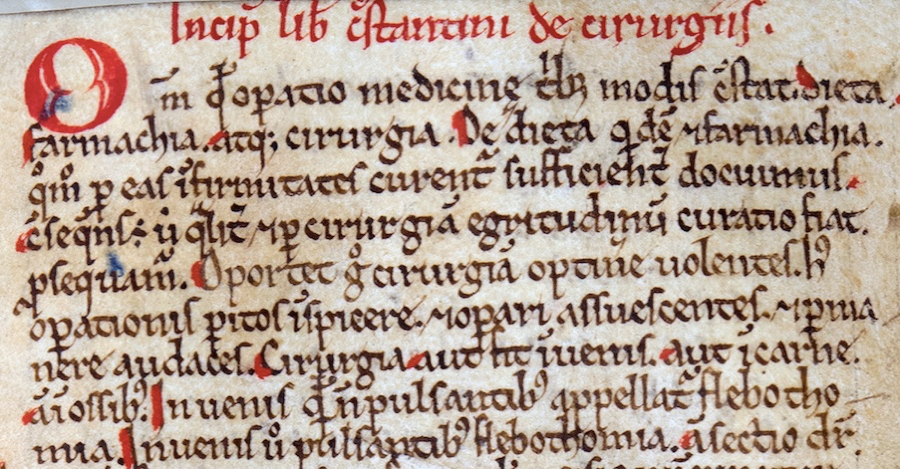 Incip lib cstantini de cirurgiis.
Om qd opatio medicine trib; modis cstat. dieta,
farmachia. atq; cirurgia. De dieta qdē ⁊ farmachia.
qm p eas ifirmitates curent sufficient docuimus.
cseqns; ú qlit ⁊ p cirurgiā egritudinū curatio fiat.
psequam. Oportet g cirurgiā optime uolentes. h
opationis pitos ispicere. ⁊ opari assuescentes. ⁊ pma
nere audaces. Cirurgia aut fit i uenis. aut i carne.
aū ossib;. In uenis qd n pulsantib; appellat flebotho
mia. In uenis ú pulsantib; flebothomia. a sectio dr